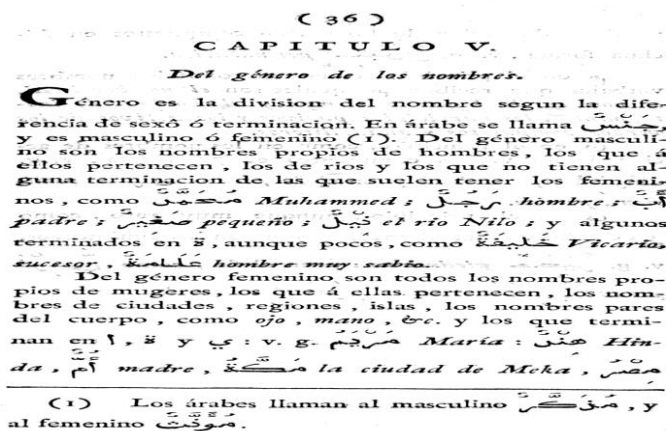 ( 36 )
CAPITULO V.
Del género de los nombres.
Género es la division del nombre segun la dife-
rencia de sexô ó terminacion. En árabe se llama جِنْسٌ
y es masculino ó femenino (1). Del género masculi-
no son los nombres propios de hombres, los que á
ellos pertenecen, los de rios y los que no tienen al-
guna terminacion de las que suelen tener los femeni-
nos, como مُحَمَّدٌ Muhammed; رَجُلٌ hombre; أَبٌ
padre; صَغِيرٌ pequeño; نِيلٌ el rio Nilo; y algunos
terminados en ة, aunque pocos, como خَلِيفَةٌ Vicario,
sucesor, عَلَّامَةٌ hombre muy sabio.
Del género femenino son todos los nombres pro-
pios de mugeres, los que á ellas pertenecen, los nom-
bres de ciudades, regiones, islas, los nombres pares
del cuerpo, como ojo, mano, &c. y los que termi-
nan en ا, ة y ي: v. g. مَرْيَمُ María: هِنْدٌ Hin-
da, أُمٌّ madre, مَكَّةٌ la ciudad de Meka, مِصْرُ
(1) Los árabes llaman al masculino مُذَكَّرٌ, y
al femenino مُؤَنَّثٌ.